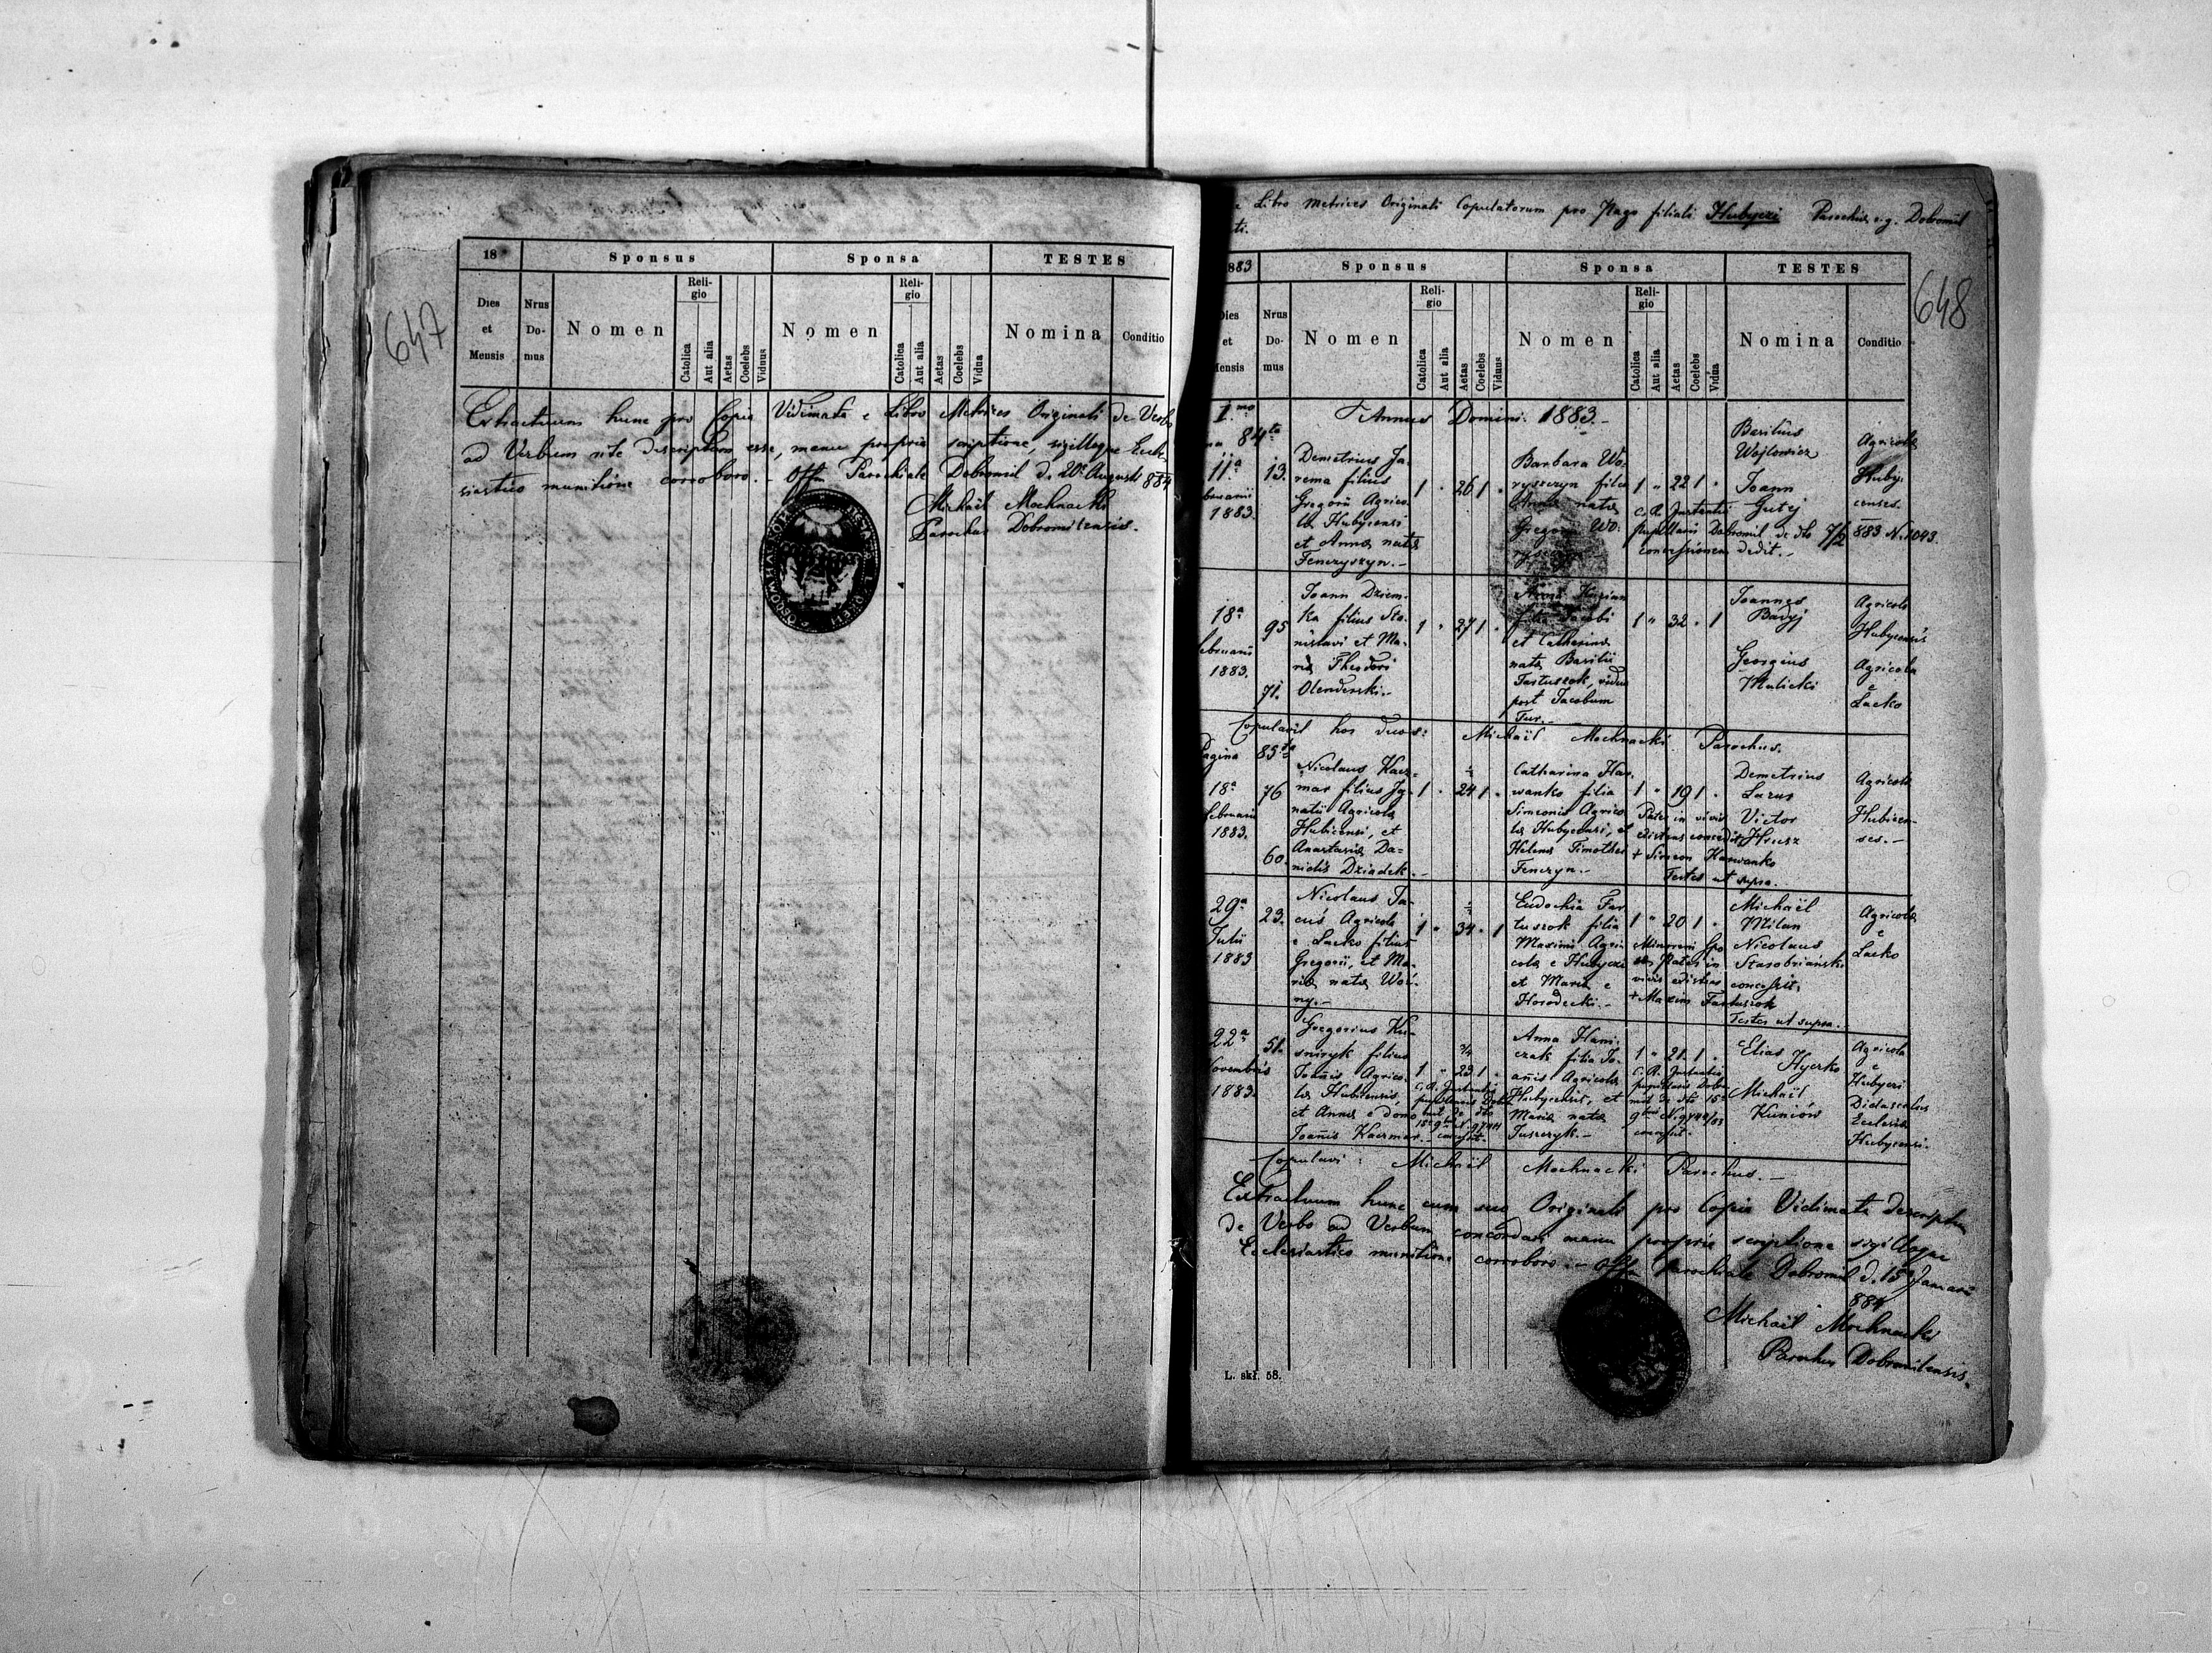 647
18
Sponsus
Sponsa
TESTES
Dies et Mensis
Nrus Domus
Nomen
Religio
Catolica
Aut alia
Aetas
Coelebs
Viduus
Nomen
Religio
Catolica
Aut alia
Aetas
Coelebs
Vidua
Nomina
Conditio
Extractuum hunc pro Copia Vidimata e Libro Metrices Originali de Verbo
ad Verbum rite descriptum esse, manu propria scriptione, sigilloque Eccle
siastico munitione corroboro. - Offm Parochiale Dobromil d. 20 Augusti 884
Michaël Mochnacki
Parochus Dobromilensis.
Libro Metrices Originali Copulatorum pro Pago filiali Hubyczi Parochiae r.g. Dobromil
648
883
Sponsus
Sponsa
TESTES
Dies et Mensis
Nrus Domus
Nomen
Religio
Catolica
Aut alia
Aetas
Coelebs
Viduus
Nomen
Religio
Catolica
Aut alia
Aetas
Coelebs
Vidua
Nomina
Conditio
84ta
Annus Domini 1883.-
11a
bruarii
1883.
13.
Demetrius Ja-
rema filius
Gregorii Agrico-
la Hubycensi
et Anna nata
Fenczyszyn.-
1 " 26 1 "
Barbara Wo-
ryszczyn filia
Anna nata
Gregorii Wo-
1 " 22 1 "
pupillaris Dobromil de dto 7/2 883 N. 1093.
concessionem dedit.-
Basilius
Wojtowicz
Joann
Gutej
Agricola
Huby-
censes.
18a
ebruarii
1883.
95
71.
Joann Dziem-
ka filius Sta-
nislavi et Ma-
ria Theodori
Olenderski.-
1 " 27 1 "
Anna
filia Jacobi
et Catharina
nata Basilii
Fartuszok, vidua
post Jacobum
Tur.-
1 " 32 " 1
Joannes
Badyj
Georgius
Malicki
Agricola
Hubycensis
Agricola
e
Lacko
Copulavit hos duos: Michaël Mochnacki Parochus.
Pagina 85ta
18a
Februarii
1883.
76
60.
Nicolaus Kacz-
mar filius Ig-
natii Agricola
Hubicensi, et
Anastasia Da-
nielis Dziadek.-
1 " 24 1 "
Catharina Har-
wanko filia
Simeonis Agrico-
la Hubycensi, et
Helena Timothei
Fenczyn.-
1 " 19 1 "
Pater in vivis
existens concedit
+ Simeon Harwanko
Testes ut supra.
Demetrius
Lazus
Victor
Hrusz
Agricola
Hubicen-
ses.-
29a
Julii
1883
23.
Nicolaus Ja-
cuś Agricola
e Lacko filius
Gregorii, et Ma-
ria nata Woi-
ny.-
1 " 34 " 1
Eudochia Far
tuszok filia
Maximi Agri-
cola e Hubyczi
et Maria e
Horodecki.-
1 " 20 1 "
Minoreni Spo
sa Pater in
vivis existens concessit,
+ Maxim Fartuszok
Testes ut supra.
Michaël
Milan
Nicolaus
Starobrianski
Agricola
e
Lacko
22a
Novembris
1883.
51.
Gregorius Ku-
sniryk filius
Joannis Agrico-
la Hubicensis,
et Anna e domo
Joannis Kaczmar.-
1 " 23 1 "
Anna Hani-
czak filia Jo-
annis Agricola
Hubycensis, et
Maria nata
Juszczyk.-
1 " 21. 1 "
Elias
Hyczko
Michaël
Kuniów
Agricola
e
Hubyczi
Didascalus
Ecclesia
Hubycensi.-
Copulavi: Michaël Mochnacki Parochus.-
Extractuum hunc cum suo Originali pro Copia Vidimata descriptum
de Verbo ad Verbum concordari manu propria scriptione sigilloque
Ecclesiastico munitione corroboro.- Offm Parochiale Dobromil d. 15 Januarii
884
Michaël Mochnacki
Parochus Dobromilensis.
L. skł. 58.